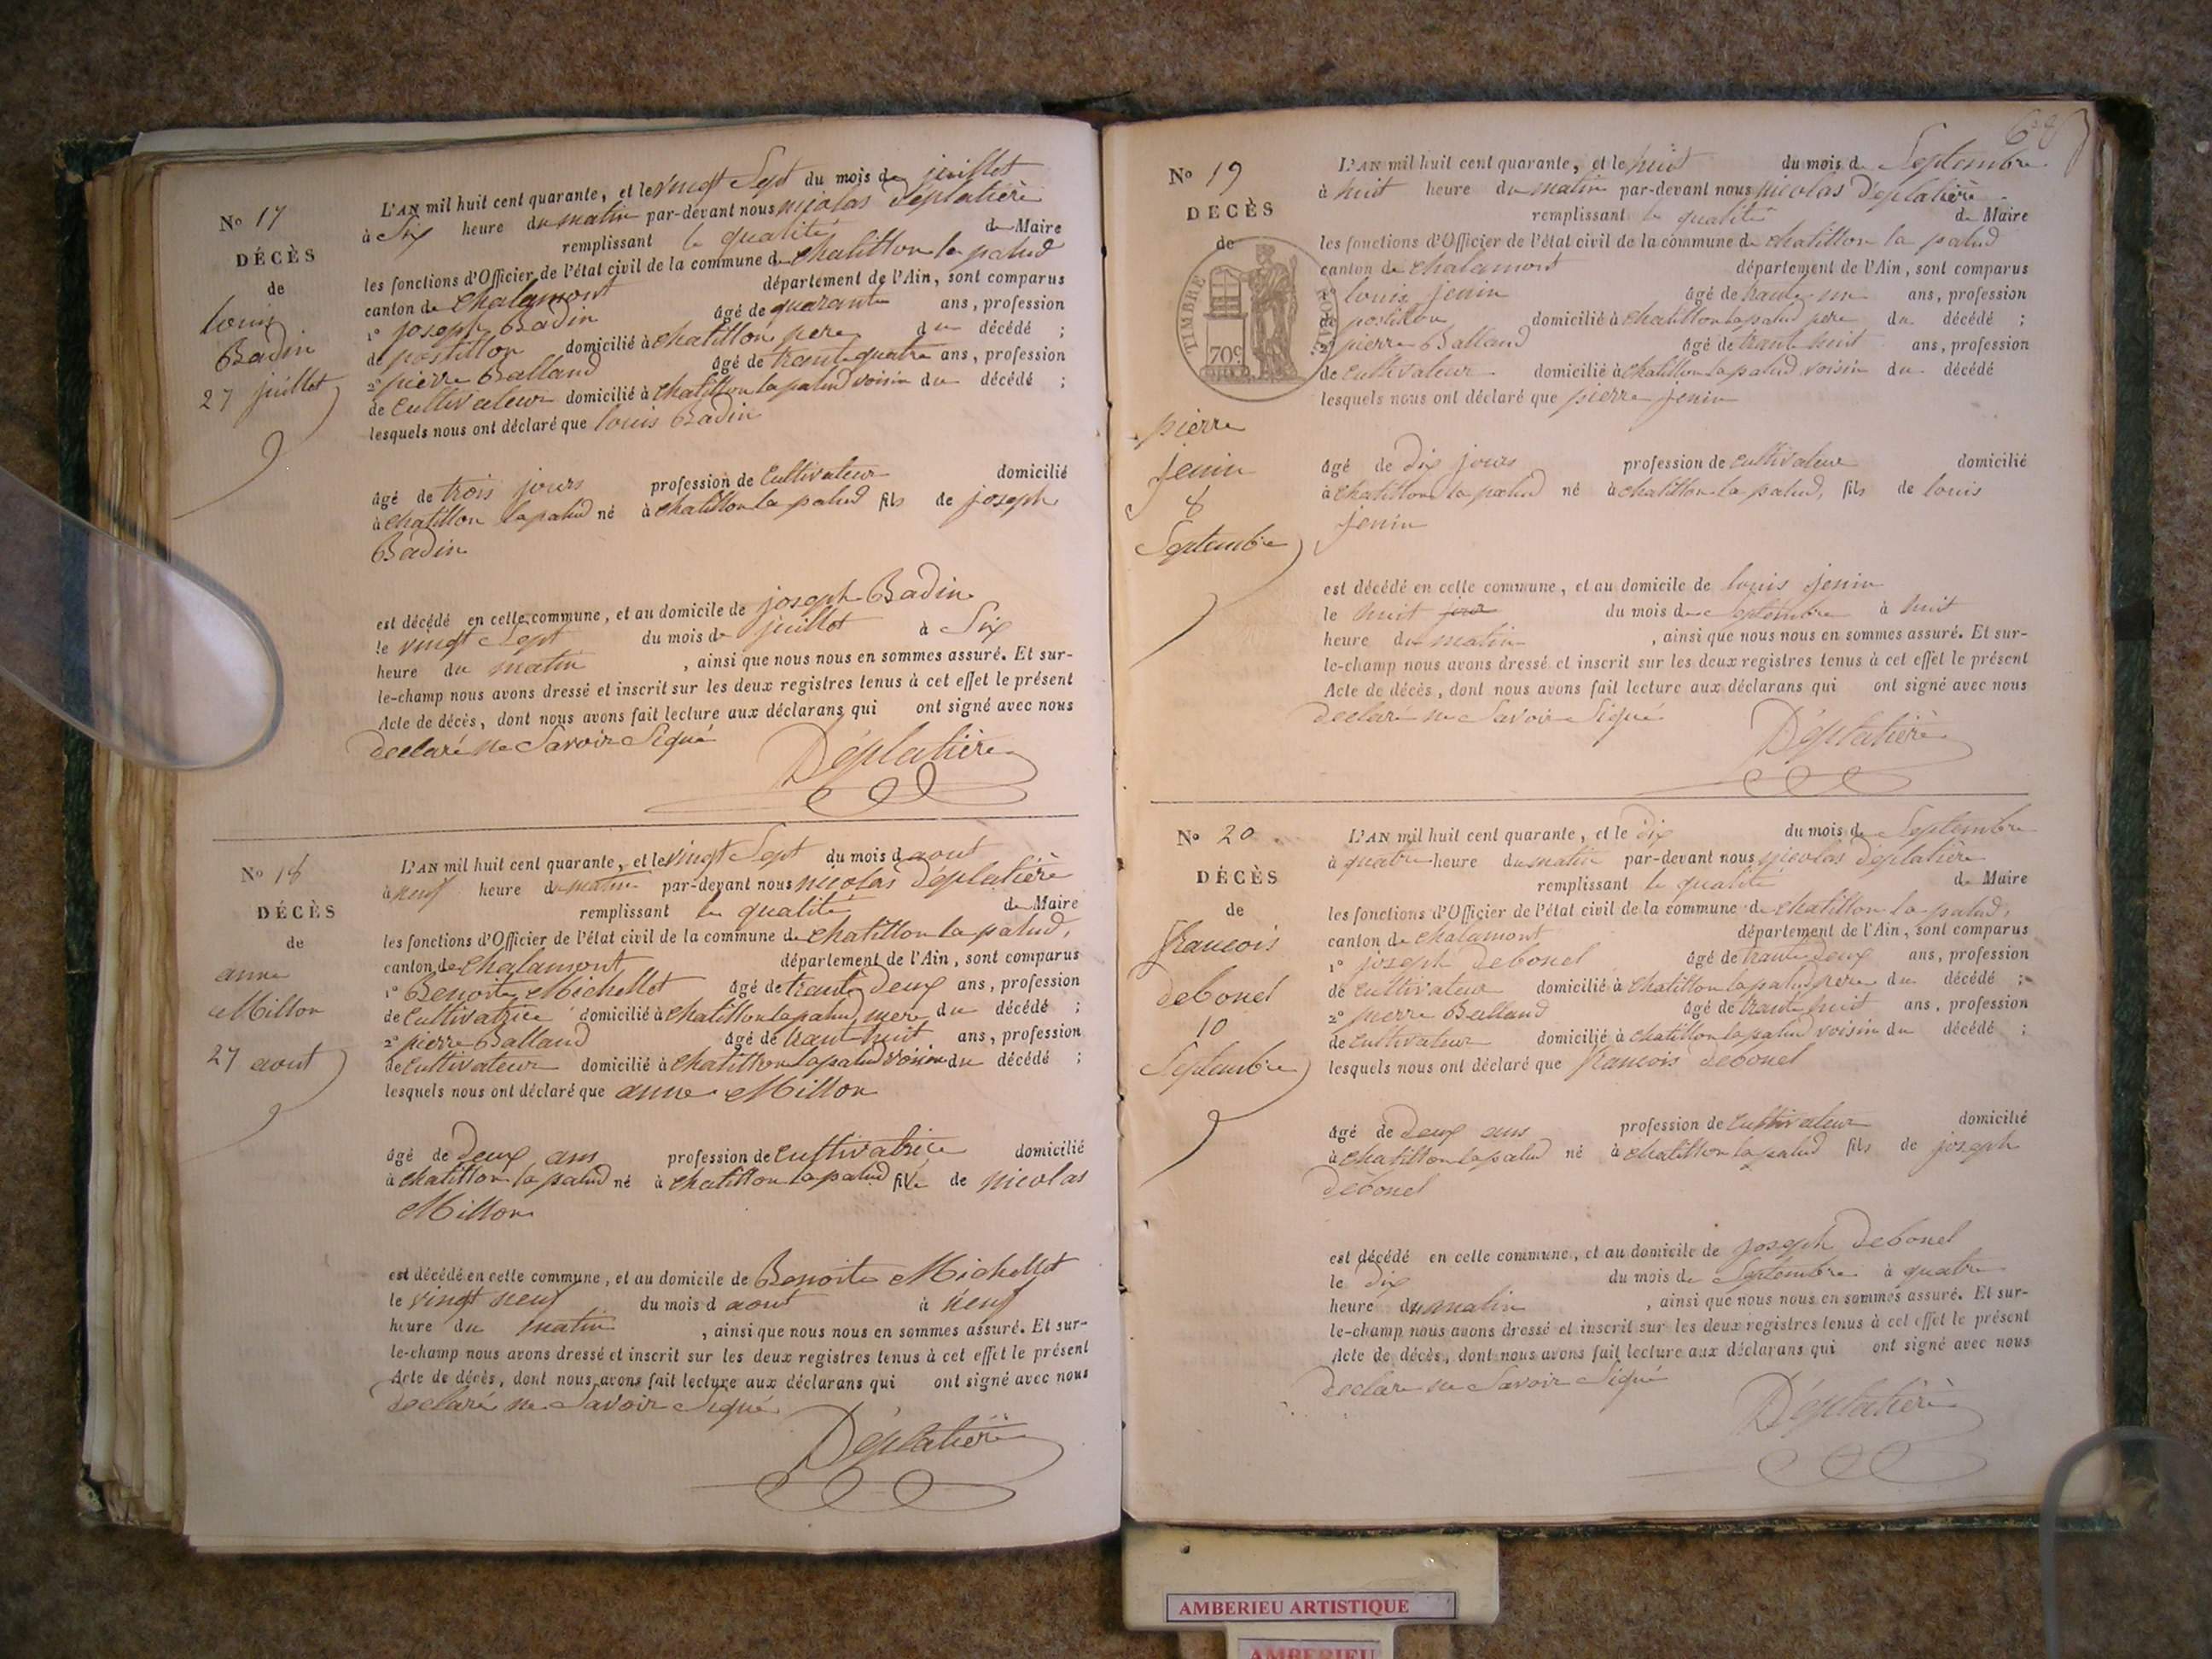 No 17
DÉCÈS
de
louis
Badin
27 juillet
L'AN mil huit cent quarante, et le vingt Sept du mois de juillet
à Six heure du matin par-devant nous nicolas Déplatière
remplissant la qualité de Maire
les fonctions d'Officier de l'état civil de la commune de chatillon la palud
canton de chalamont département de l'Ain, sont comparus
1° joseph Badin âgé de quarante ans, profession
de postillon domicilié à chatillon pere du décédé ;
2° pierre Balland âgé de trante quatre ans, profession
de Cultivateur domicilié à chatillon la palud voisin du décédé ;
lesquels nous ont déclaré que louis Badin
âgé de trois jours profession de Cultivateur domicilié
à chatillon la palud né à chatillon la palud fils de joseph
Badin
est décédé en cette commune, et au domicile de joseph Badin
le vingt Sept du mois de juillet à Six
heure du matin , ainsi que nous nous en sommes assuré. Et sur-
le-champ nous avons dressé et inscrit sur les deux registres tenus à cet effet le présent
Acte de décès, dont nous avons fait lecture aux déclarans qui ont signé avec nous
declaré ne Savoir Signé
Déplatière
No 18
DÉCÈS
de
anne
Millon
27 aout
L'AN mil huit cent quarante, et le vingt Sept du mois d aout
à neuf heure du matin par-devant nous nicolas Déplatière
remplissant la qualité de Maire
les fonctions d'Officier de l'état civil de la commune de chatillon la palud,
canton de chalamont département de l'Ain, sont comparus
1° Benoite Michellet âgé de trante Deux ans, profession
de Cultivatrice domicilié à chatillon la palud mere du décédé ;
2° pierre Balland âgé de trant huit ans, profession
de Cultivateur domicilié à chatillon la palud voisin du décédé ;
lesquels nous ont déclaré que anne Millon
âgé de Deux ans profession de Cultivatrice domicilié
à chatillon la palud né à chatillon la palud fille de nicolas
Millon
est décédé en cette commune, et au domicile de Benoite Michellet
le vingt neuf du mois d aout à neuf
heure du matin , ainsi que nous nous en sommes assuré. Et sur-
le-champ nous avons dressé et inscrit sur les deux registres tenus à cet effet le présent
Acte de décès, dont nous avons fait lecture aux déclarans qui ont signé avec nous
declaré ne Savoir Signé
Déplatière
No 19
DECÈS
de
TIMBRE
70c
pierre
jenin
8
Septembre
L'AN mil huit cent quarante, et le huit du mois de Septembre
à huit heure du matin par-devant nous nicolas Déplatière
remplissant la qualité de Maire
les fonctions d'Officier de l'état civil de la commune de chatillon la palud
canton de chalamont département de l'Ain, sont comparus
1° louis jenin âgé de trante un ans, profession
de postillon domicilié à chatillon la palud pere du décédé ;
2° pierre Balland âgé de trant huit ans, profession
de Cultivateur domicilié à chatillon la palud voisin du décédé
lesquels nous ont déclaré que pierre jenin
âgé de dix jours profession de cultivateur domicilié
à chatillon la palud né à chatillon la palud, fils de louis
jenin
est décédé en cette commune, et au domicile de louis jenin
le huit jour du mois de Septembre à huit
heure du matin , ainsi que nous nous en sommes assuré. Et sur-
le-champ nous avons dressé et inscrit sur les deux registres tenus à cet effet le présent
Acte de décès, dont nous avons fait lecture aux déclarans qui ont signé avec nous
declaré ne Savoir Signé
Déplatière
No 20
DÉCÈS
de
francois
debonel
10
Septembre
L'AN mil huit cent quarante, et le dix du mois de Septembre
à quatre heure du matin par-devant nous nicolas Déplatière
remplissant la qualité de Maire
les fonctions d'Officier de l'état civil de la commune de chatillon la palud,
canton de chalamont département de l'Ain, sont comparus
1° joseph debonel âgé de trante deux ans, profession
de Cultivateur domicilié à chatillon la palud pere du décédé ;
2° pierre Balland âgé de trante huit ans, profession
de cultivateur domicilié à chatillon la palud voisin du décédé ;
lesquels nous ont déclaré que francois debonel
âgé de deux ans profession de cultivateur domicilié
à chatillon la palud né à chatillon la palud fils de joseph
debonel
est décédé en cette commune, et au domicile de joseph debonel
le dix du mois de Septembre à quatre
heure du matin , ainsi que nous nous en sommes assuré. Et sur-
le-champ nous avons dressé et inscrit sur les deux registres tenus à cet effet le présent
Acte de décès, dont nous avons fait lecture aux déclarans qui ont signé avec nous
declare ne Savoir Signé
Déplatière
AMBERIEU ARTISTIQUE
AMBERIEU